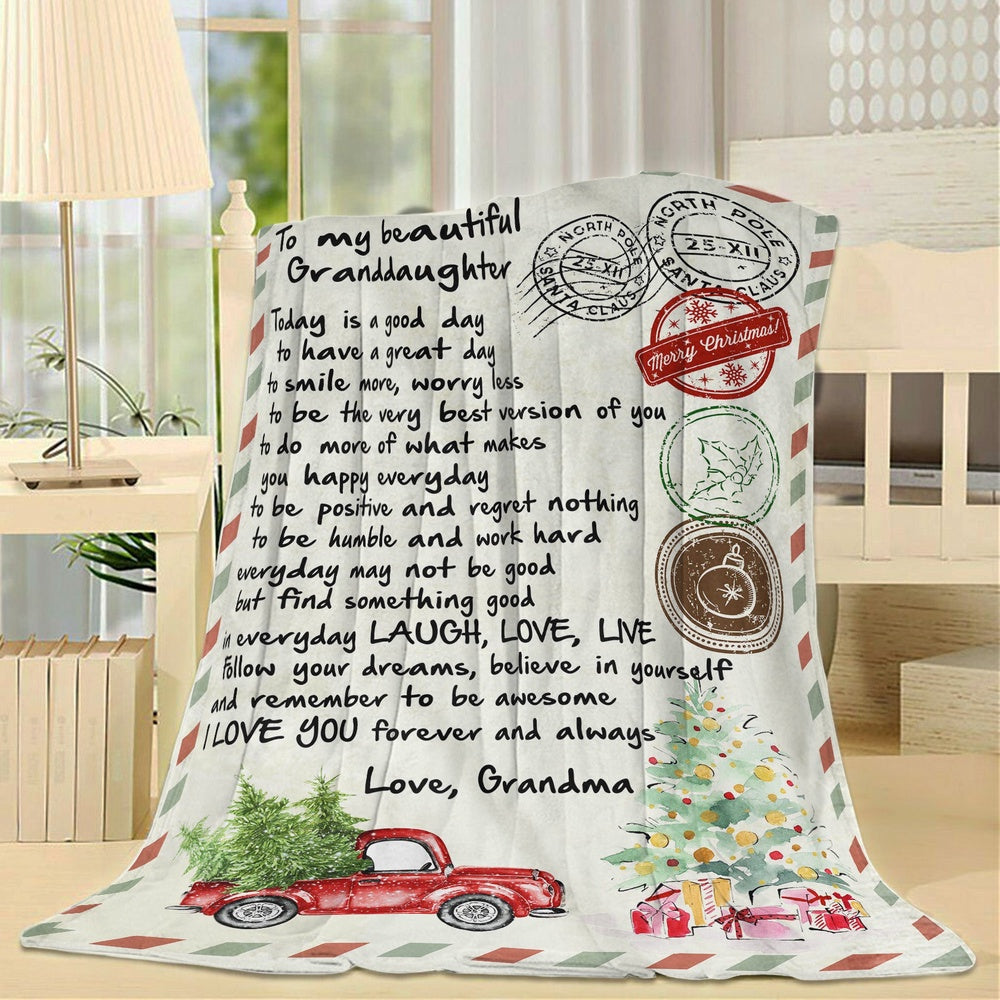 To my beautiful
Granddaughter
Today is a good day
to have a great day
to smile more, worry less
to be the very best version of you
to do more of what makes
you happy everyday
to be positive and regret nothing
to be humble and work hard
everyday may not be good
but find something good
in everyday LAUGH, LOVE, LIVE
Follow your dreams, believe in yourself
and remember to be awesome
I LOVE YOU forever and always
Love, Grandma
NORTH POLE
25-XII
SANTA CLAUS
NORTH POLE
25-XII
SANTA CLAUS
Merry Christmas!